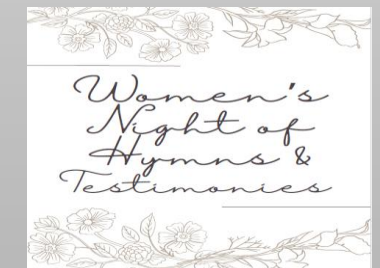 Women's
Night of
Hymns &
Testimonies